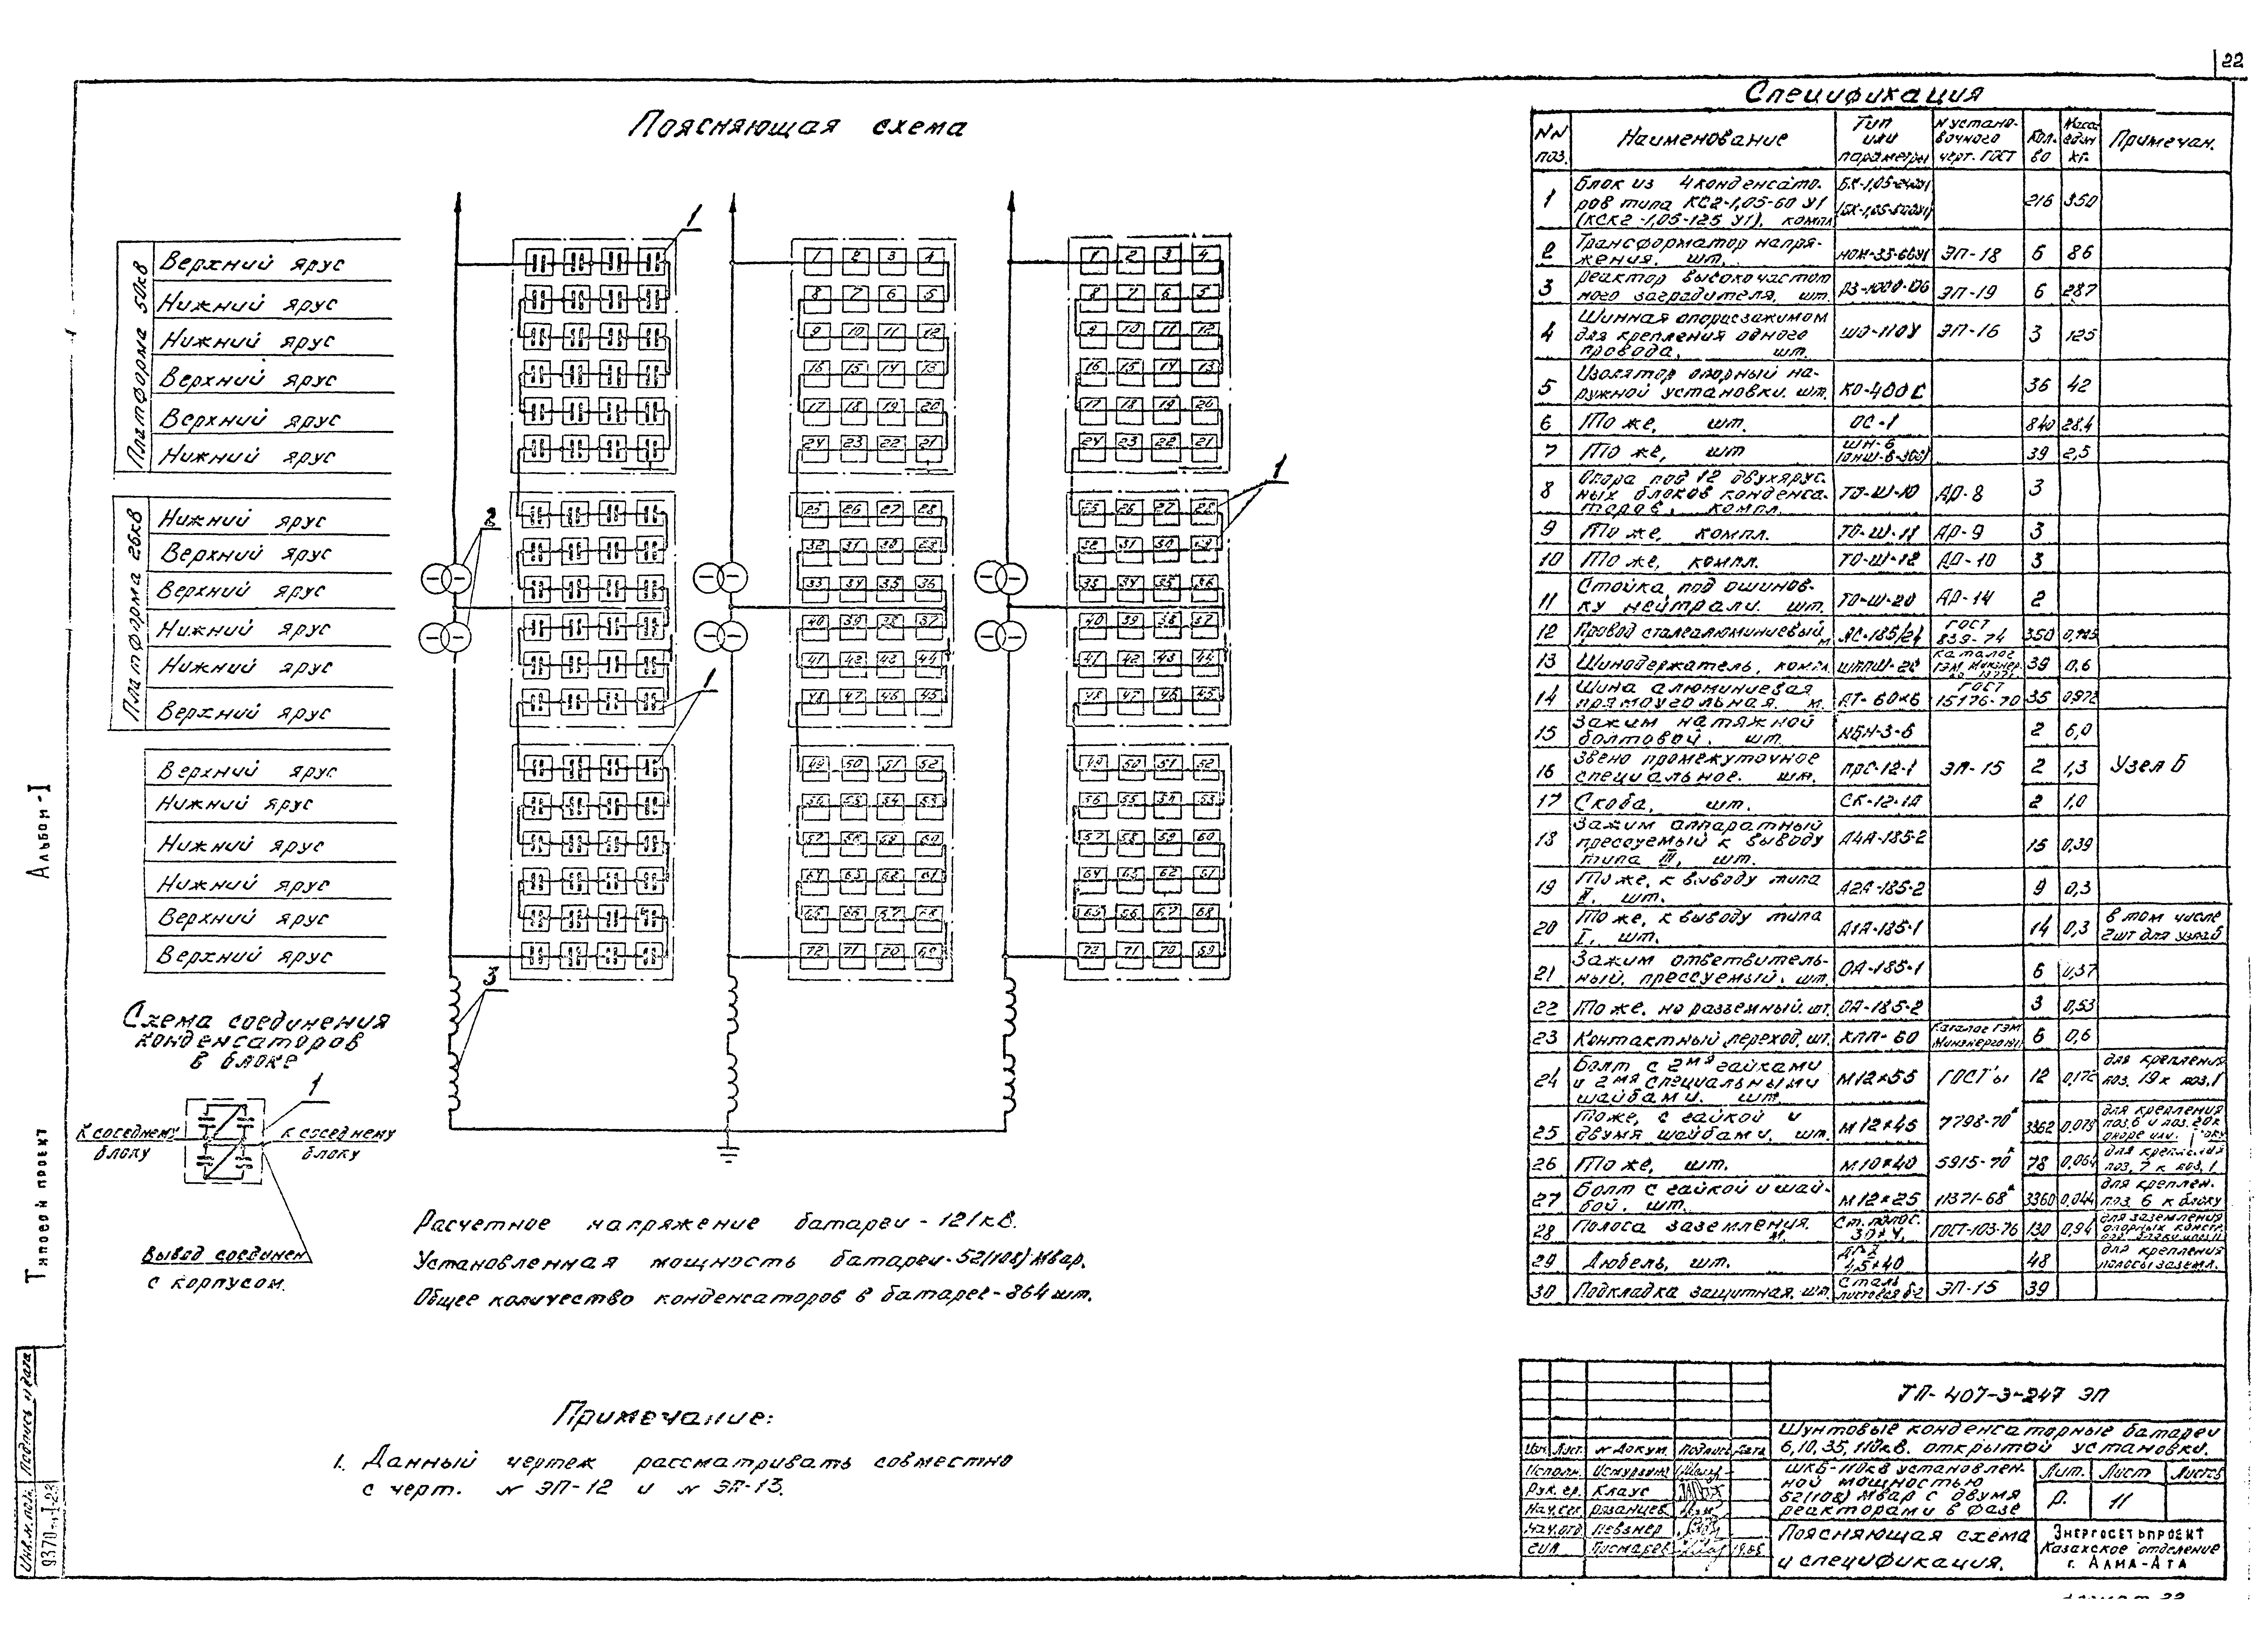 22
Поясняющая схема
Платформа 50кв
Верхний ярус
Нижний ярус
Нижний ярус
Верхний ярус
Верхний ярус
Нижний ярус
Платформа 26кв
Нижний ярус
Верхний ярус
Верхний ярус
Нижний ярус
Нижний ярус
Верхний ярус
Верхний ярус
Нижний ярус
Нижний ярус
Нижний ярус
Верхний ярус
Верхний ярус
1
2
1
1
3
1 2 3 4
8 7 6 5
9 10 11 12
16 15 14 13
17 18 19 20
24 23 22 21
25 26 27 28
32 31 30 29
33 34 35 36
40 39 38 37
41 42 43 44
48 47 46 45
49 50 51 52
56 55 54 53
57 58 59 60
64 63 62 61
65 66 67 68
72 71 70 69
1 2 3 4
8 7 6 5
9 10 11 12
16 15 14 13
17 18 19 20
24 23 22 21
25 26 27 28
32 31 30 29
33 34 35 36
40 39 38 37
41 42 43 44
48 47 46 45
49 50 51 52
56 55 54 53
57 58 59 60
64 63 62 61
65 66 67 68
72 71 70 69
Схема соединения
конденсаторов
в блоке
1
К соседнему
блоку
К соседнему
блоку
Вывод соединен
с корпусом.
Расчетное напряжение батареи - 121кв.
Установленная мощность батареи - 52(108) Мвар.
Общее количество конденсаторов в батарее - 864 шт.
Примечание:
1. Данный чертеж рассматривать совместно
с черт. N ЭП-12 и N ЭП-13.
Альбом-I
Типовой проект
Инв.N.подл. Подпись и дата
9370тм-I-23
Спецификация
NN поз. Наименование Тип или параметры N установочного черт. ГОСТ Кол-во Масса един кг. Примечан.
1 Блок из 4 конденсаторов типа КС2-1,05-60 У1 (КСК2-1,05-125 У1), компл 216 350
2 Трансформатор напряжения. шт. НОМ-35-66У1 ЭП-18 6 86
3 Реактор высокочастотного заградителя, шт. РЗ-1000-0,6 ЭП-19 6 287
4 Шинная опора с зажимом для крепления одного провода, шт. ШО-110У ЭП-16 3 125
5 Изолятор опорный наружной установки. шт. КО-400С 36 42
6 То же, шт. ОС-1 840 28.4
7 То же, шт ШН-6 39 2,5
8 Опора под 12 двухярусных блоков конденсаторов, компл. ТО-Ш-10 АР-8 3
9 То же, компл. ТО-Ш-11 АР-9 3
10 То же, компл. ТО-Ш-12 АР-10 3
11 Стойка под ошиновку нейтрали. шт. ТО-Ш-20 АР-14 2
12 Провод сталеалюминиевый м АС-185/24 ГОСТ 839-74 350
13 Шинодержатель, компл. 39 0,6
14 Шина алюминиевая прямоугольная. м. АТ-60х6 ГОСТ 15176-70 35 0,972
15 Зажим натяжной болтовой. шт. НБН-3-6 2 6,0
16 Звено промежуточное специальное. шт. ПРС-12-1 ЭП-15 2 1,3 Узел Б
17 Скоба, шт. СК-12-1А 2 1,0
18 Зажим аппаратный прессуемый к выводу типа III, шт. А4А-185-2 15 0,39
19 То же, к выводу типа II. шт. А2А-185-2 9 0,3
20 То же, к выводу типа I. шт. А1А-185-1 14 0,3 в том числе 2шт для узла Б
21 Зажим ответвительный, прессуемый. шт. ОА-185-1 6 0,37
22 То же, но разъемный. шт. ОА-185-2 3 0,53
23 Контактный переход, шт. КПП-60 Каталог ГЭМ Минэнерго 6 0,6
24 Болт с 2мя гайками и 2мя специальными шайбами. шт. М12х55 ГОСТ'ы 12 0,172 для крепления поз. 19 к поз. 1
25 То же, с гайкой и двумя шайбами. шт. М12х45 7798-70* 3362 0,079 для крепления поз.6 и поз.20 к опоре или
26 То же, шт. М10х40 5915-70* 78 0,064 для крепления поз. 7 к поз. 1
27 Болт с гайкой и шайбой. шт. М12х25 11371-68* 3360 0,044 для креплен. поз. 6 к блоку
28 Полоса заземления м. Ст. полос. 30х4. ГОСТ-103-76 130 0,94 для заземления опорных констр.
29 Дюбель, шт. 4,5х40 48 для крепления полосы заземл.
30 Подкладка защитная. шт. Сталь листовая б-2 ЭП-15 39
ТП-407-3-247 ЭП
Шунтовые конденсаторные батареи
6,10,35,110кв. открытой установки.
Изм. Лист. N докум. Подпись Дата
Исполн.
Рук. гр. Клаус
Нач.сек. Рязанцев
Нач.отд Невзнер
ГИП Писмарев
ШКБ-110кв установлен-
ной мощностью
52(108) Мвар с двумя
реакторами в фазе
Лит. Лист Листов
Р. 11
Поясняющая схема
и спецификация.
Энергосетьпроект
Казахское отделение
г. Алма-Ата